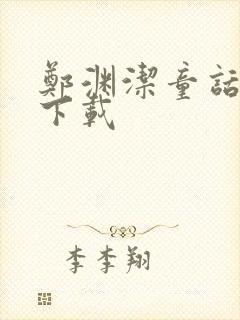 鄭渊潔童話
下載
李李翔